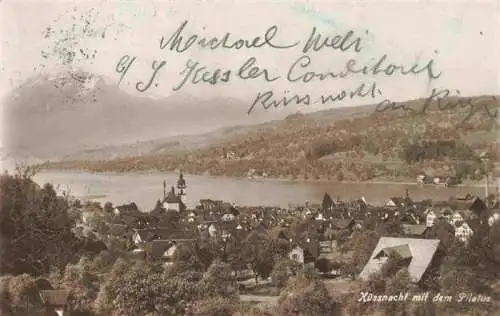 Michael Weli
c/o J. Kessler Conditorei
Küssnacht am Rigi
Küssnacht mit dem Pilatus